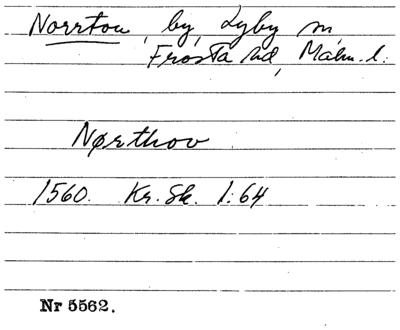 Norrtou, by, Lyby sn,
Frosta hd, Malm. l.
Nørthov
1560. Kr. Sk. 1:64
Nr 5562.